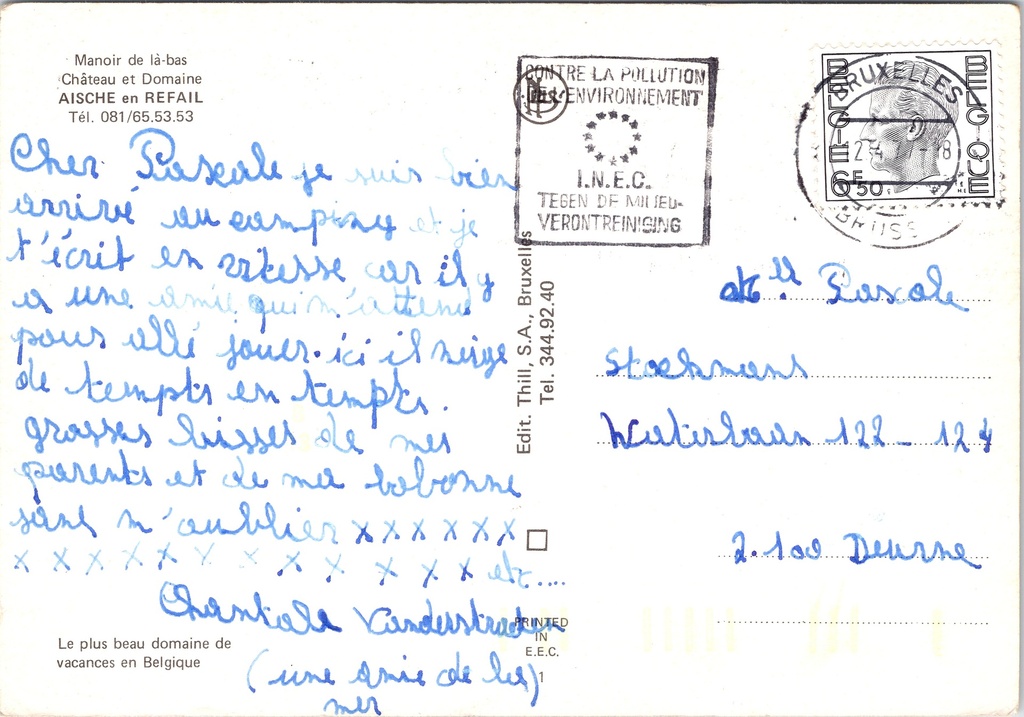 Manoir de là-bas
Château et Domaine
AISCHE en REFAIL
Tél. 081/65.53.53
Cher Pascale je suis bien
arrivé au camping et je
t'écrit en vitesse car il y
a une amie qui m'attend
pour allé jouer. ici il neige
de tempts en tempts.
grosses baisses de mes
parents et de ma bobonne
sans m'oublier x x x x x x
x x x x x x x x x x x etc....
Chantale Vanderstraeten
(une amie de la)
mer
Le plus beau domaine de
vacances en Belgique
Edit. Thill, S.A., Bruxelles
Tel. 344.92.40
PRINTED
IN
E.E.C.
1
CONTRE LA POLLUTION
DE L'ENVIRONNEMENT
I.N.E.C.
TEGEN DE MILIEU-
VERONTREINIGING
BRUXELLES
BRUSS
BELGIE
BELGIQUE
6F50
Pascale
Stockmans
122 - 124
2.100 Deurne